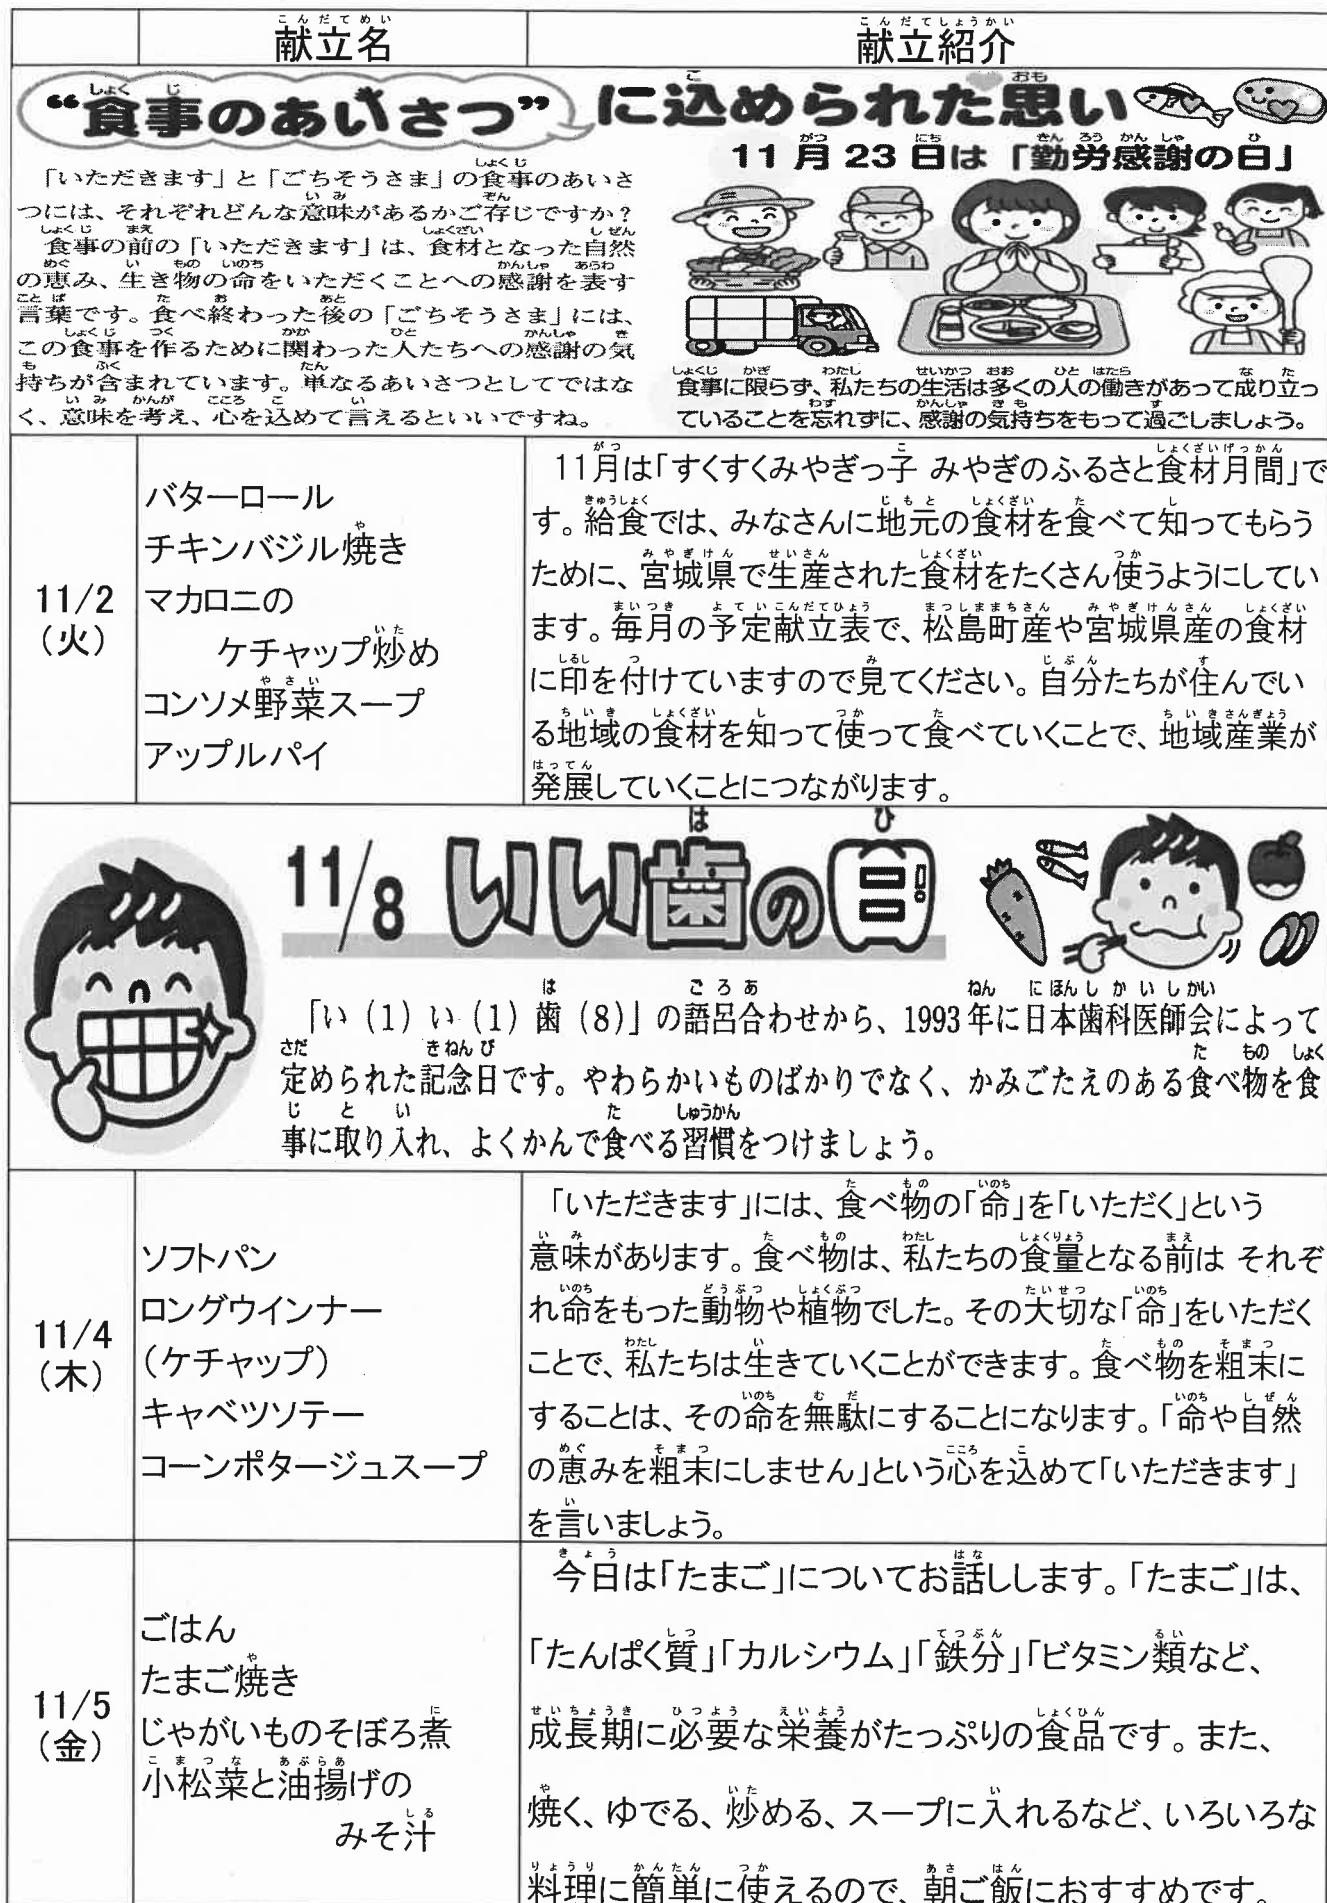 献立名
献立紹介
“食事のあいさつ”に込められた思い
11月23日は「勤労感謝の日」
「いただきます」と「ごちそうさま」の食事のあいさ
つには、それぞれどんな意味があるかご存じですか?
食事の前の「いただきます」は、食材となった自然
の恵み、生き物の命をいただくことへの感謝を表す
言葉です。食べ終わった後の「ごちそうさま」には、
この食事を作るために関わった人たちへの感謝の気
持ちが含まれています。単なるあいさつとしてではな
く、意味を考え、心を込めて言えるといいですね。
食事に限らず、私たちの生活は多くの人の働きがあって成り立っ
ていることを忘れずに、感謝の気持ちをもって過ごしましょう。
11/2
(火)
バターロール
チキンバジル焼き
マカロニの
ケチャップ炒め
コンソメ野菜スープ
アップルパイ
11月は「すくすくみやぎっ子 みやぎのふるさと食材月間」で
す。給食では、みなさんに地元の食材を食べて知ってもらう
ために、宮城県で生産された食材をたくさん使うようにしてい
ます。毎月の予定献立表で、松島町産や宮城県産の食材
に印を付けていますので見てください。自分たちが住んでい
る地域の食材を知って使って食べていくことで、地域産業が
発展していくことにつながります。
11/8 いい歯の日
「い(1)い(1)歯(8)」の語呂合わせから、1993年に日本歯科医師会によって
定められた記念日です。やわらかいものばかりでなく、かみごたえのある食べ物を食
事に取り入れ、よくかんで食べる習慣をつけましょう。
11/4
(木)
ソフトパン
ロングウインナー
(ケチャップ)
キャベツソテー
コーンポタージュスープ
「いただきます」には、食べ物の「命」を「いただく」という
意味があります。食べ物は、私たちの食量となる前は それぞ
れ命をもった動物や植物でした。その大切な「命」をいただく
ことで、私たちは生きていくことができます。食べ物を粗末に
することは、その命を無駄にすることになります。「命や自然
の恵みを粗末にしません」という心を込めて「いただきます」
を言いましょう。
11/5
(金)
ごはん
たまご焼き
じゃがいものそぼろ煮
小松菜と油揚げの
みそ汁
今日は「たまご」についてお話しします。「たまご」は、
「たんぱく質」「カルシウム」「鉄分」「ビタミン類など、
成長期に必要な栄養がたっぷりの食品です。また、
焼く、ゆでる、炒める、スープに入れるなど、いろいろな
料理に簡単に使えるので、朝ご飯におすすめです。